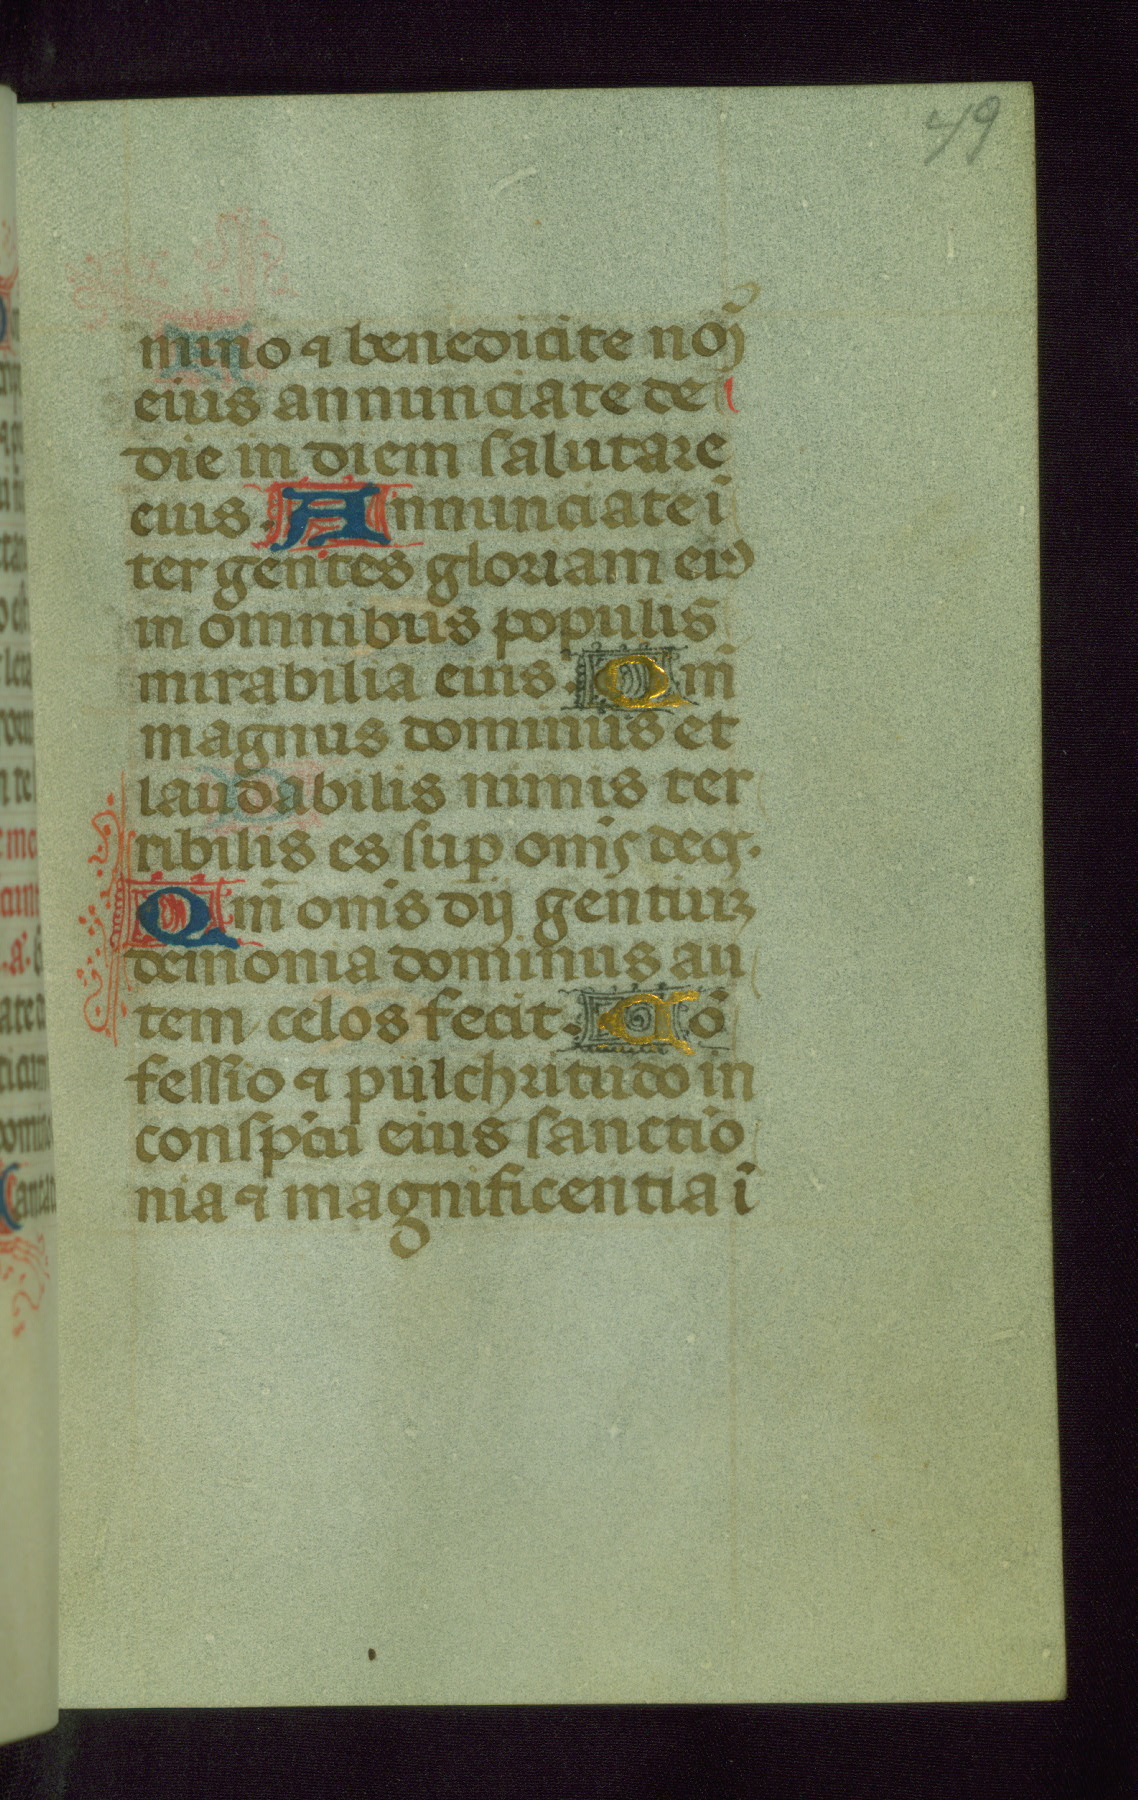 49
mino ⁊ benedicite noı̄
eius annunciate de
die in diem salutare
eius. Annunciate ī
ter gentes gloriam eiꝰ
in omnibus populis
mirabilia eius. Qm̄
magnus dominus et
laudabilis nimis ter
ribilis es sup om̄s deos.
Qm̄ om̄s dij gentiuꝫ
demonia dominus au
tem celos fecit. Cō
fessio ⁊ pulchritudo in
conspcū eius sanctiō
nia ⁊ magnificentia ī